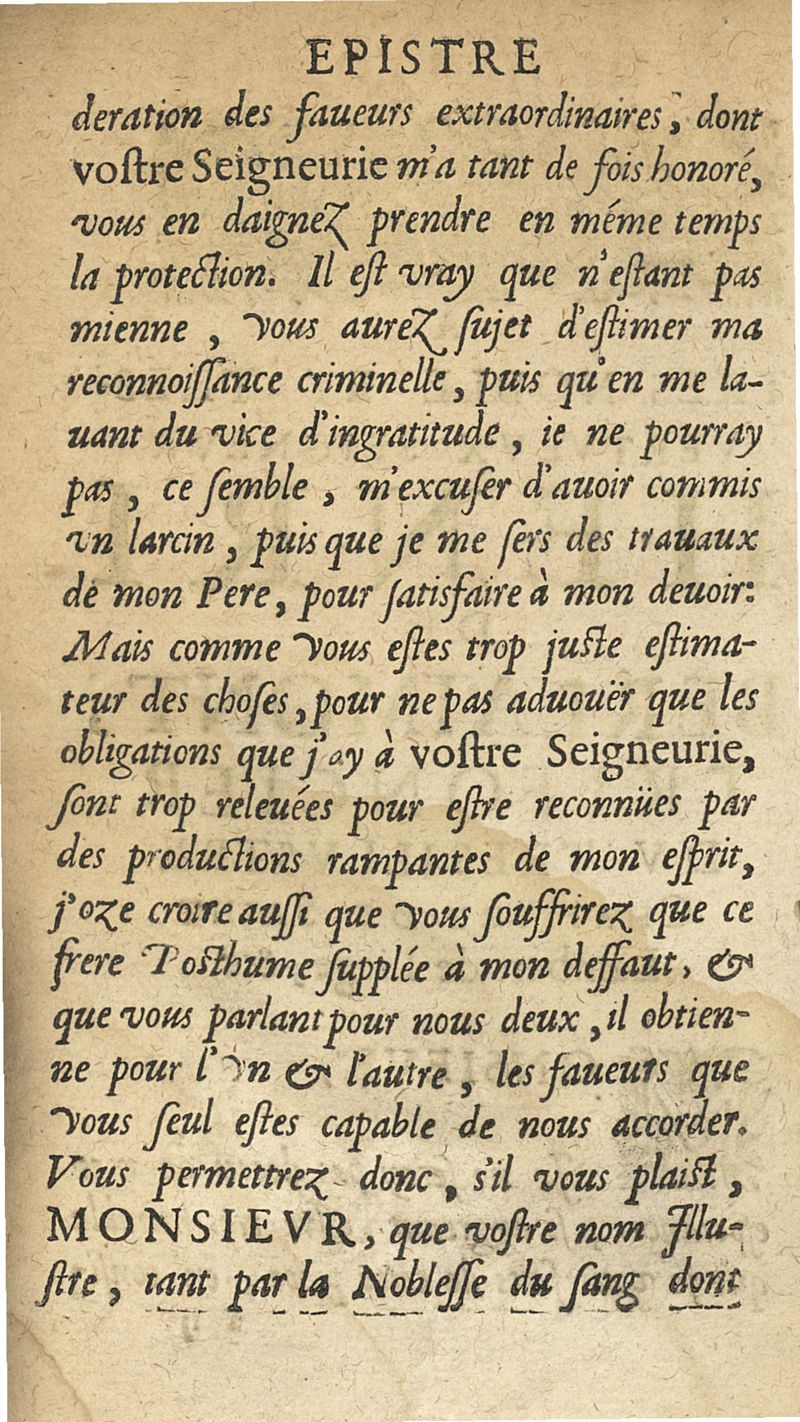 EPISTRE
deration des faueurs extraordinaires, dont
voſtre Seigneurie m'a tant de fois honoré,
vous en daignez prendre en méme temps
la protection. Il eſt vray que n'eſtant pas
mienne, vous aurez ſujet d'eſtimer ma
reconnoiſſance criminelle, puis qu'en me la-
uant du vice d'ingratitude, ie ne pourray
pas, ce ſemble, m'excuſer d'auoir commis
vn larcin, puis que je me ſers des trauaux
de mon Pere, pour ſatisfaire à mon deuoir:
Mais comme vous eſtes trop juſte eſtima-
teur des choſes, pour ne pas aduouër que les
obligations que j'ay à voſtre Seigneurie,
ſont trop releuées pour eſtre reconnües par
des productions rampantes de mon eſprit,
j'oze croire auſſi que vous ſouffrirez que ce
frere Poſthume ſupplée à mon deffaut, &
que vous parlant pour nous deux, il obtien-
ne pour l'vn & l'autre, les faueurs que
vous ſeul eſtes capable de nous accorder.
Vous permettrez donc, s'il vous plaiſt,
MONSIEVR, que voſtre nom Illu-
ſtre, tant par la Nobleſſe du ſang dont